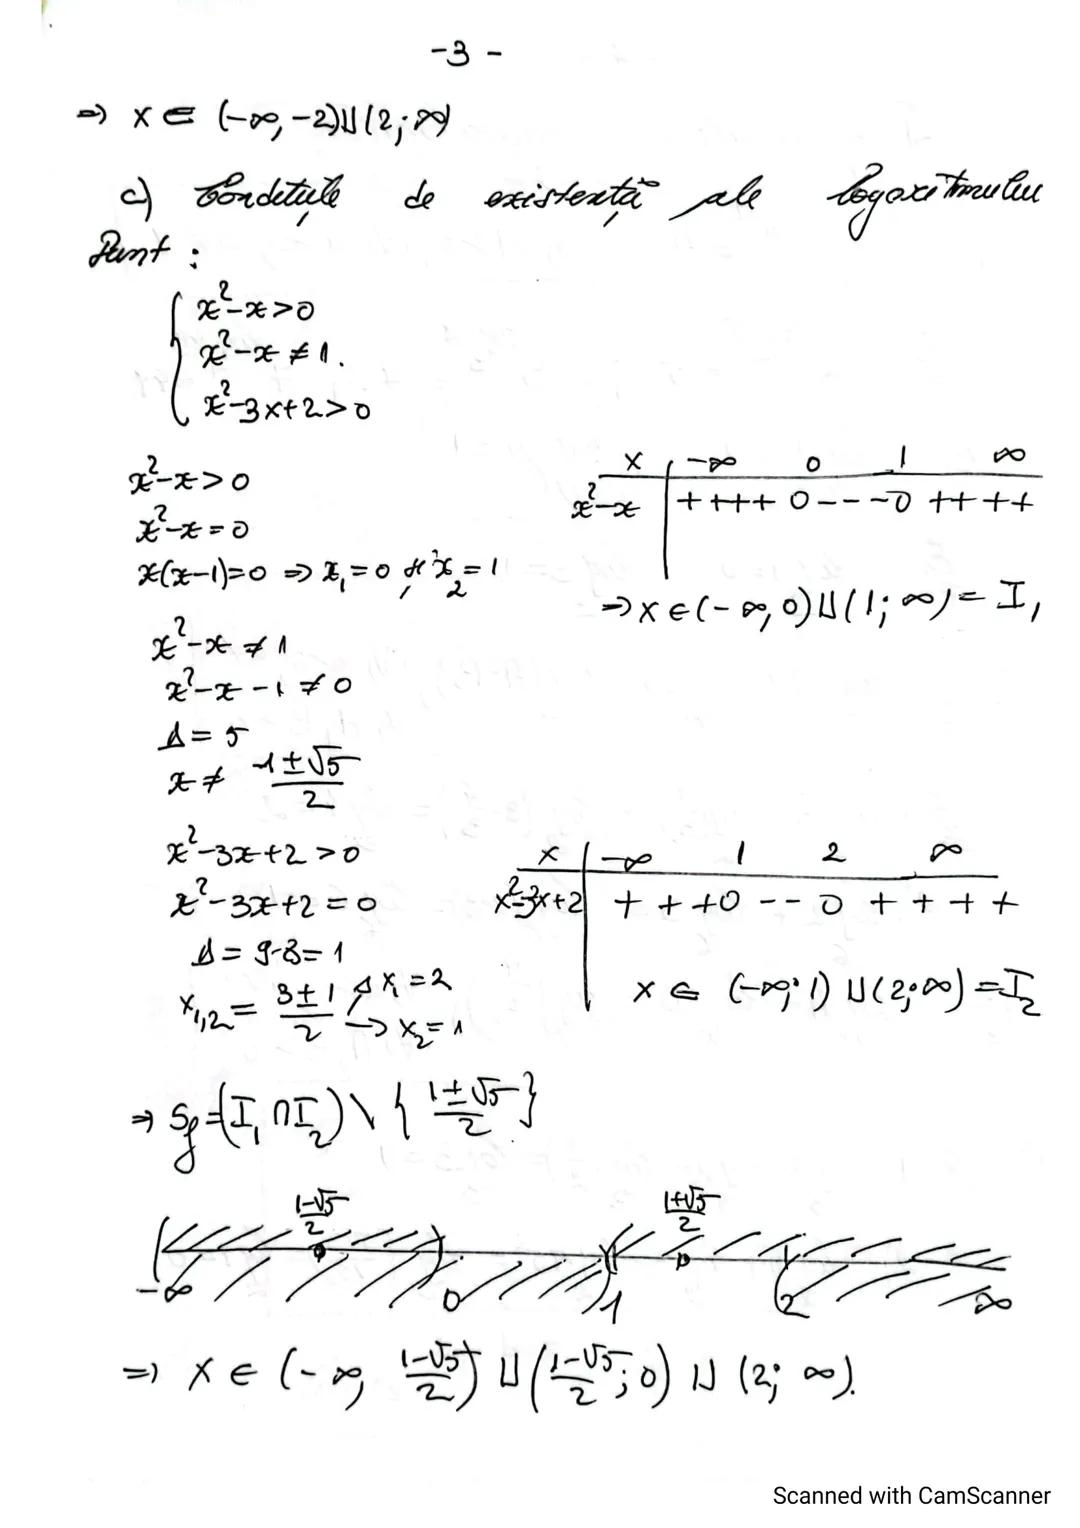 -3-
⇒ x ∈ (-∞, -2) ∪ (2; ∞)
c) Condițiile de existență ale logaritmului
sunt :
x²-x>0
x²-x ≠ 1.
x²-3x+2>0
x²-x>0
x²-x=0
x(x-1)=0 ⇒ x₁=0 și x₂=1
x -∞ 0 1 ∞
x²-x ++++ 0 --- 0 ++++
⇒ x ∈ (-∞, 0) ∪ (1; ∞) = I₁
x²-x ≠ 1
x²-x-1 ≠ 0
Δ = 5
x ≠ (1±√5)/2
x²-3x+2 >0
x²-3x+2 = 0
Δ = 9-8 = 1
x₁,₂ = (3±1)/2 → x₁=2
→ x₂=1
x -∞ 1 2 ∞
x²-3x+2 + + + 0 -- 0 + + + +
x ∈ (-∞; 1) ∪ (2; ∞) = I₂
⇒ Sf = (I₁ ∩ I₂) \ { (1±√5)/2 }
(1-√5)/2 (1+√5)/2
-∞ 0 1 2 ∞
⇒ x ∈ (-∞, (1-√5)/2) ∪ ((1-√5)/2; 0) ∪ (2; ∞).
Scanned with CamScanner